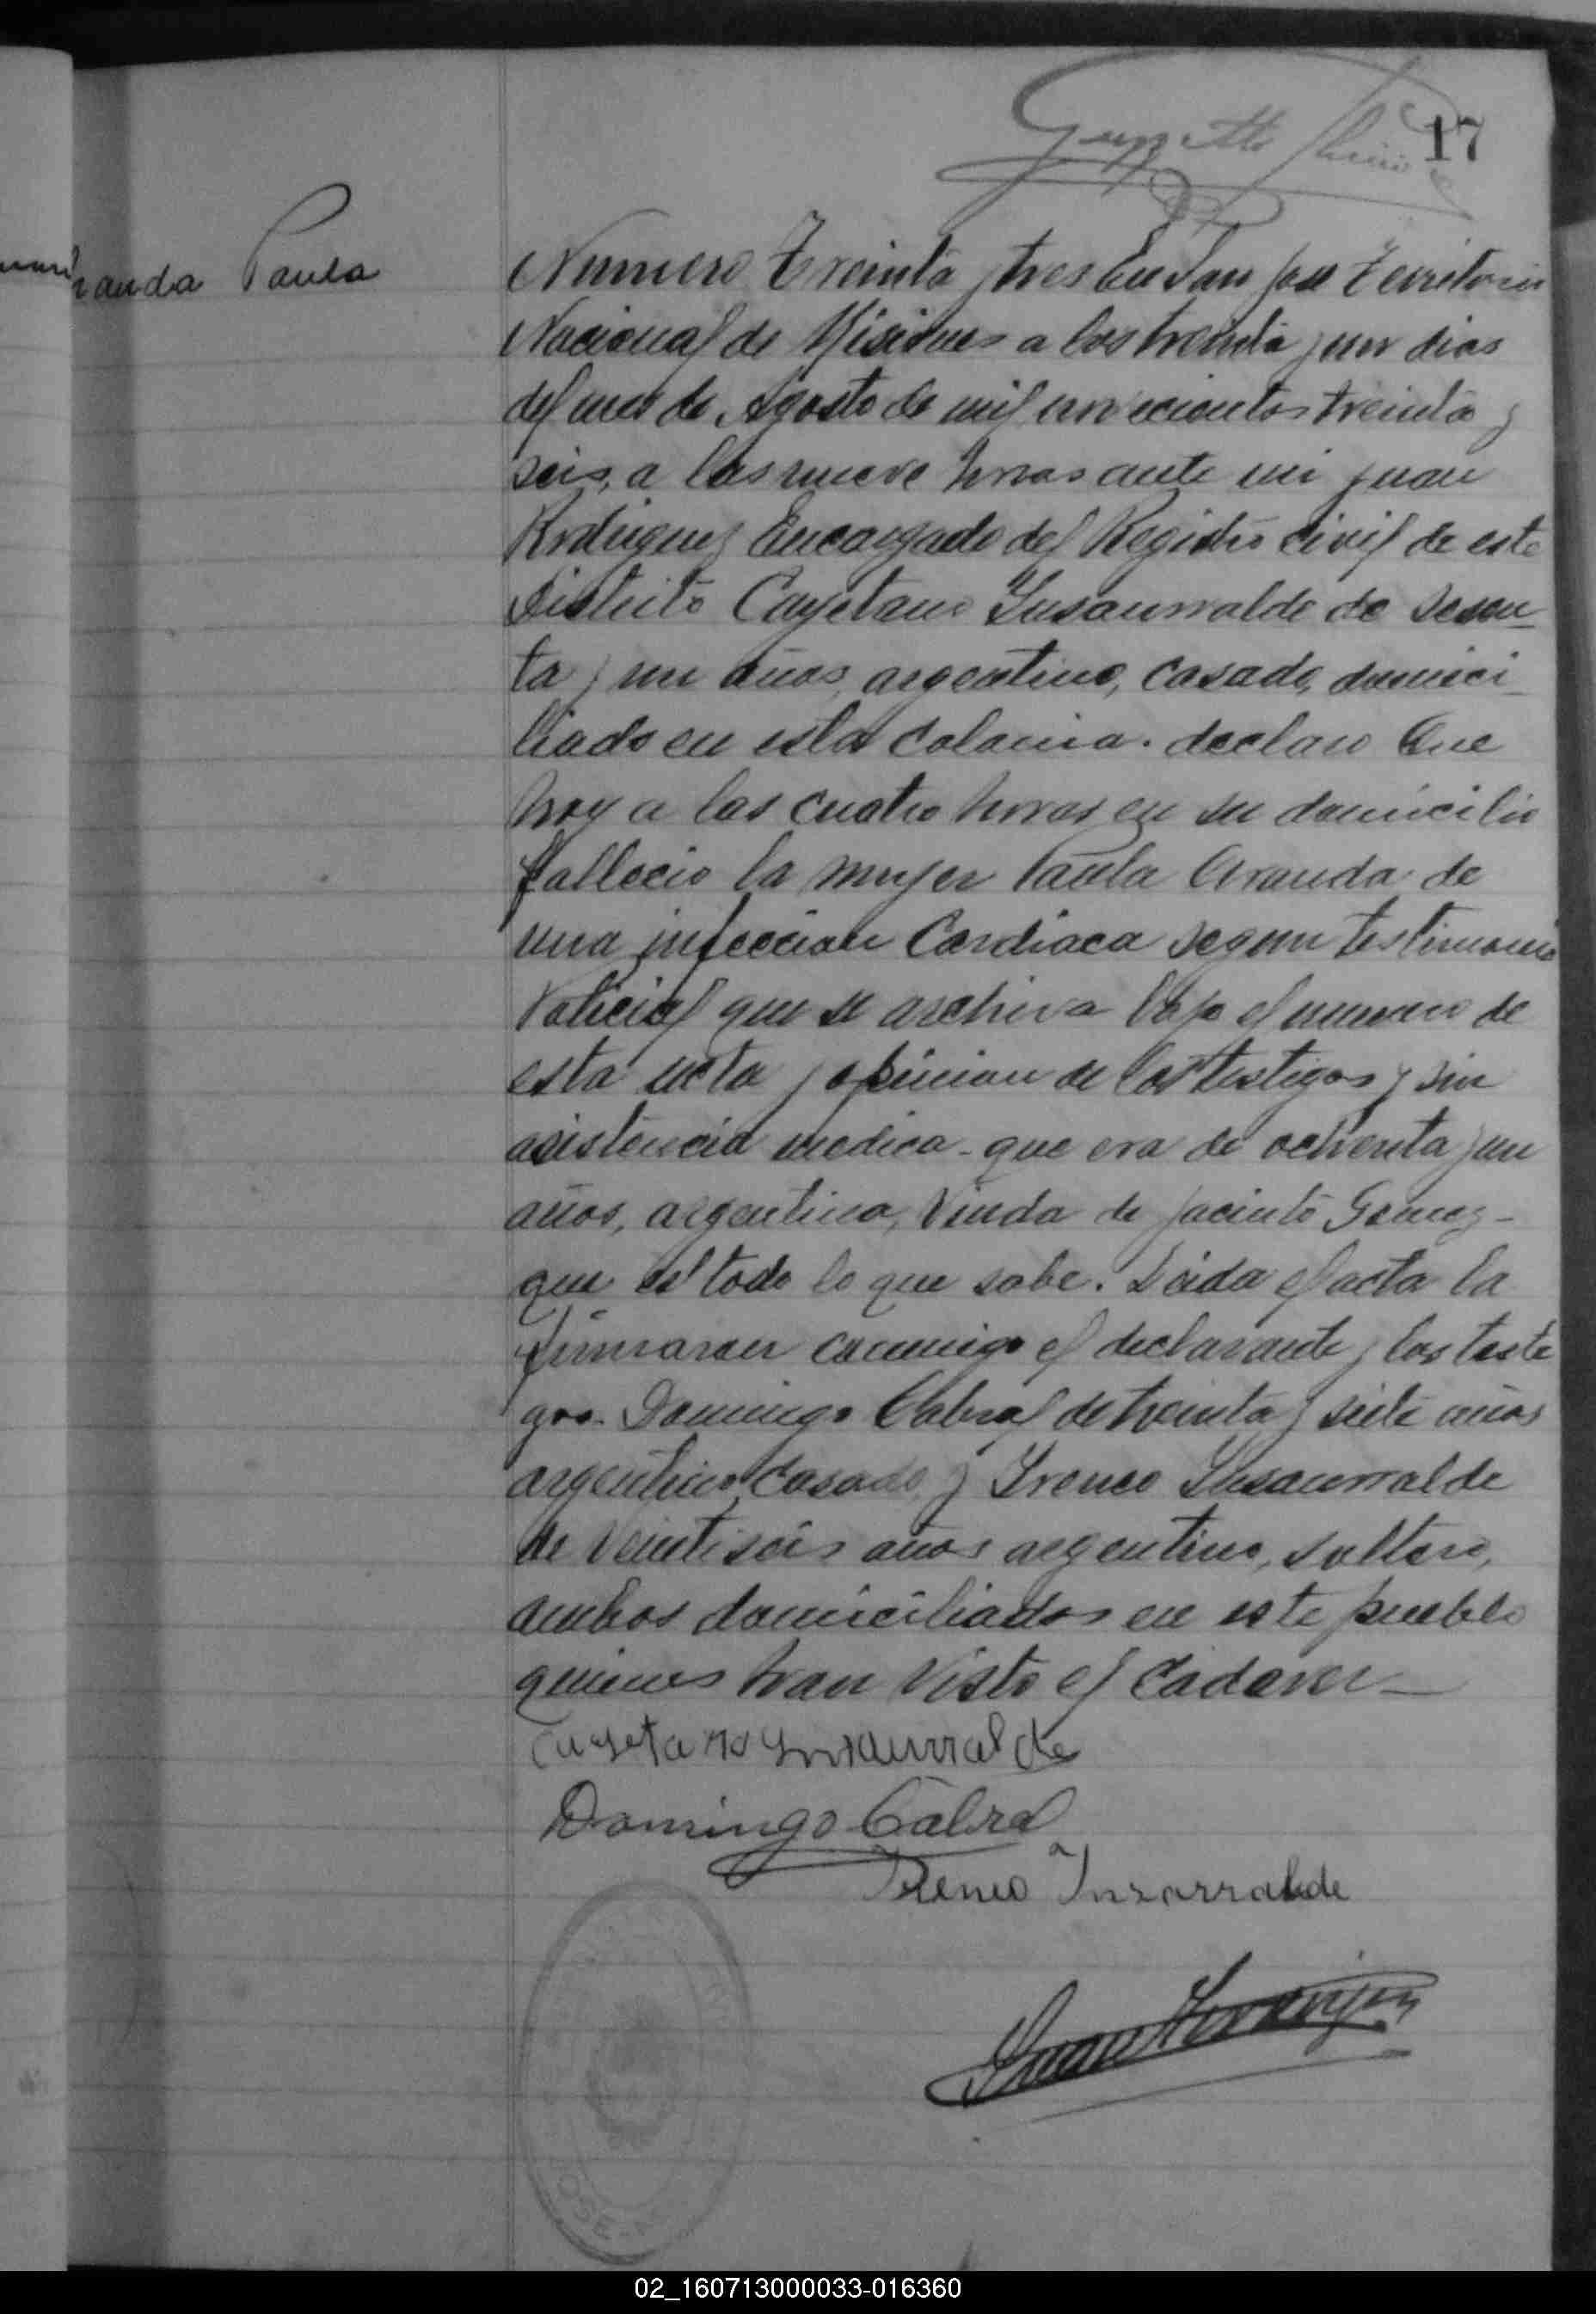 17
Aranda Paula
Numero Treinta y tres En San Jose Territorio
Nacional de Misiones a los treinta y un dias
del mes de Agosto de mil novecientos treinta y
seis, a las nueve horas ante mi Juan
Rodriguez Encargado del Registro civil de este
Distrito Cayetano Insaurralde de sesen-
ta y un años, argentino, casado, domici-
liado en esta colonia. declaro Que
hoy a las cuatro horas en su domicilio
fallecio la mujer Paula Aranda de
una infeccion Cardiaca segun testimonio
Policial que se archiva bajo el numero de
esta acta y opinion de los testigos y sin
asistencia medica - que era de ochenta y un
años, argentina, Viuda de Jacinto Gomez -
que es todo lo que sabe. Leida el acta la
firmaron conmigo el declarante y los testi
gos. Domingo Cabral de treinta y siete años
argentino, casado, y Ireneo Insaurralde
de veintiseis años argentino, soltero,
ambos domiciliados en este pueblo
quienes han visto el cadaver —
Cayetano Insaurralde
Domingo Cabral
Ireneo Insarralde
Juan Rodriguez
JOSE
02_160713000033-016360